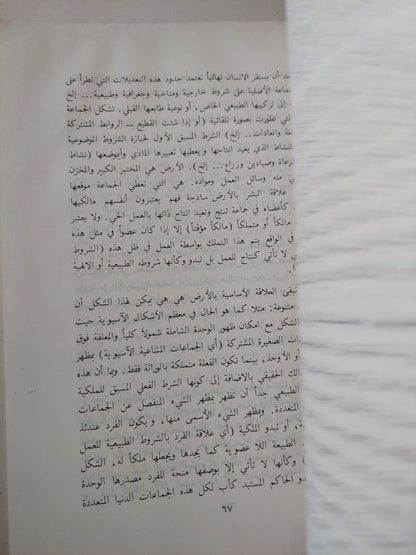 ـعد أن يستقر الانسان نهائياً تعتمد حدود هذه التعديلات التي تطرأ على
ـماعة الأصلية على شروط خارجية ومناخية وجغرافية وطبيعية... إلخ
إلى تركيبها الطبيعي الخاص، أو نوعية طابعها القبلي. تشكل الجماعة
التي تطورت بصورة تلقائية (أو إذا شئت القطيع ــ الروابط المشتركة
ـة والعادات.. إلخ) الشرط المسبق الأول لحيازة الشروط الموضوعية
للنشاط الذي يعيد انتاجها ويعطيها تعبيرها المادي وأيموضعها (نشاط
ـزعاة وصيادين وزراع... إلخ). الأرض هي المختبر الكبير والمخزن
ـي منه وسائل العمل ومواده. هي التي تعطي الجماعة موقعها
علاقة البشر بالأرض ساذجة فهم يعتبرون أنفسهم مالكيها
كأعضاء في جماعة تنتج وتعيد انتاج ذاتها بالعمل الحي. ولا يعتبر
مالكاً أو متملكاً (مالكاً مؤقتاً) إلا إذا كان عضواً في مثل هذه
في الواقع يتم هذا التملك بواسطة العمل في ظل هذه (الشروط
ـي لا تأتي كنتاج للعمل بل تبدو وكأنها شروطه الطبيعية أو الالهية
).
تبقى العلاقة الأساسية بالأرض هي هي يمكن لهذا الشكل أن
متنوعة: مثلا كما هو الحال في معظم الأشكال الآسيوية حيث
الشكل مع امكان ظهور الوحدة الشاملة شمولاً كلياً والمعلقة فوق
ـات الصغيرة المشتركة (أي الجماعات المشاعية الآسيوية) بمظهر
أو الأوحد، بينما تكون الفعلة متملكة بالوراثة فقط. وبما أن هذه
ـالك الحقيقي بالاضافة إلى كونها الشرط الفعلي المسبق للملكية
الطبيعي جداً أن تظهر بمظهر الشيء المنفصل عن الجماعات
المتعددة. وبمظهر الشيء الأسمى منها، ويكون الفرد عندئذ
، أو تبدو الملكية (أي علاقة الفرد بالشروط الطبيعية للعمل
الطبيعة اللا عضوية كما يجدها ويجعلها ملكاً له، الشكل
) وكأنها لا تأتي إلا بوصفها منحة للفرد مصدرها الوحدة
ـدو الحاكم المستبد كأب لكل هذه الجماعات الدنيا المتعددة
٦٧